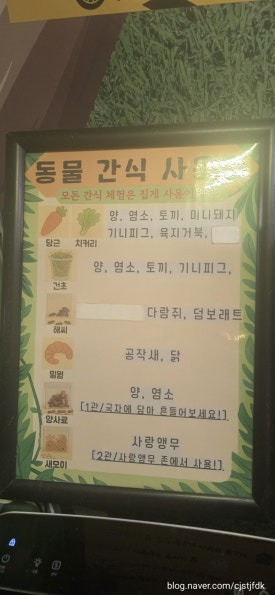 동물 간식 사
모든 간식 체험은 집게 사용이
당근
치커리
양, 염소, 토끼, 미니돼지
기니피그, 육지거북,
건초
양, 염소, 토끼, 기니피그,
해씨
다람쥐, 덤보래트
밀웜
공작새, 닭
양사료
양, 염소
[1관/국자에 담아 흔들어보세요!]
새모이
사랑앵무
[2관/사랑앵무 존에서 사용!]
blog.naver.com/cjstjfdk